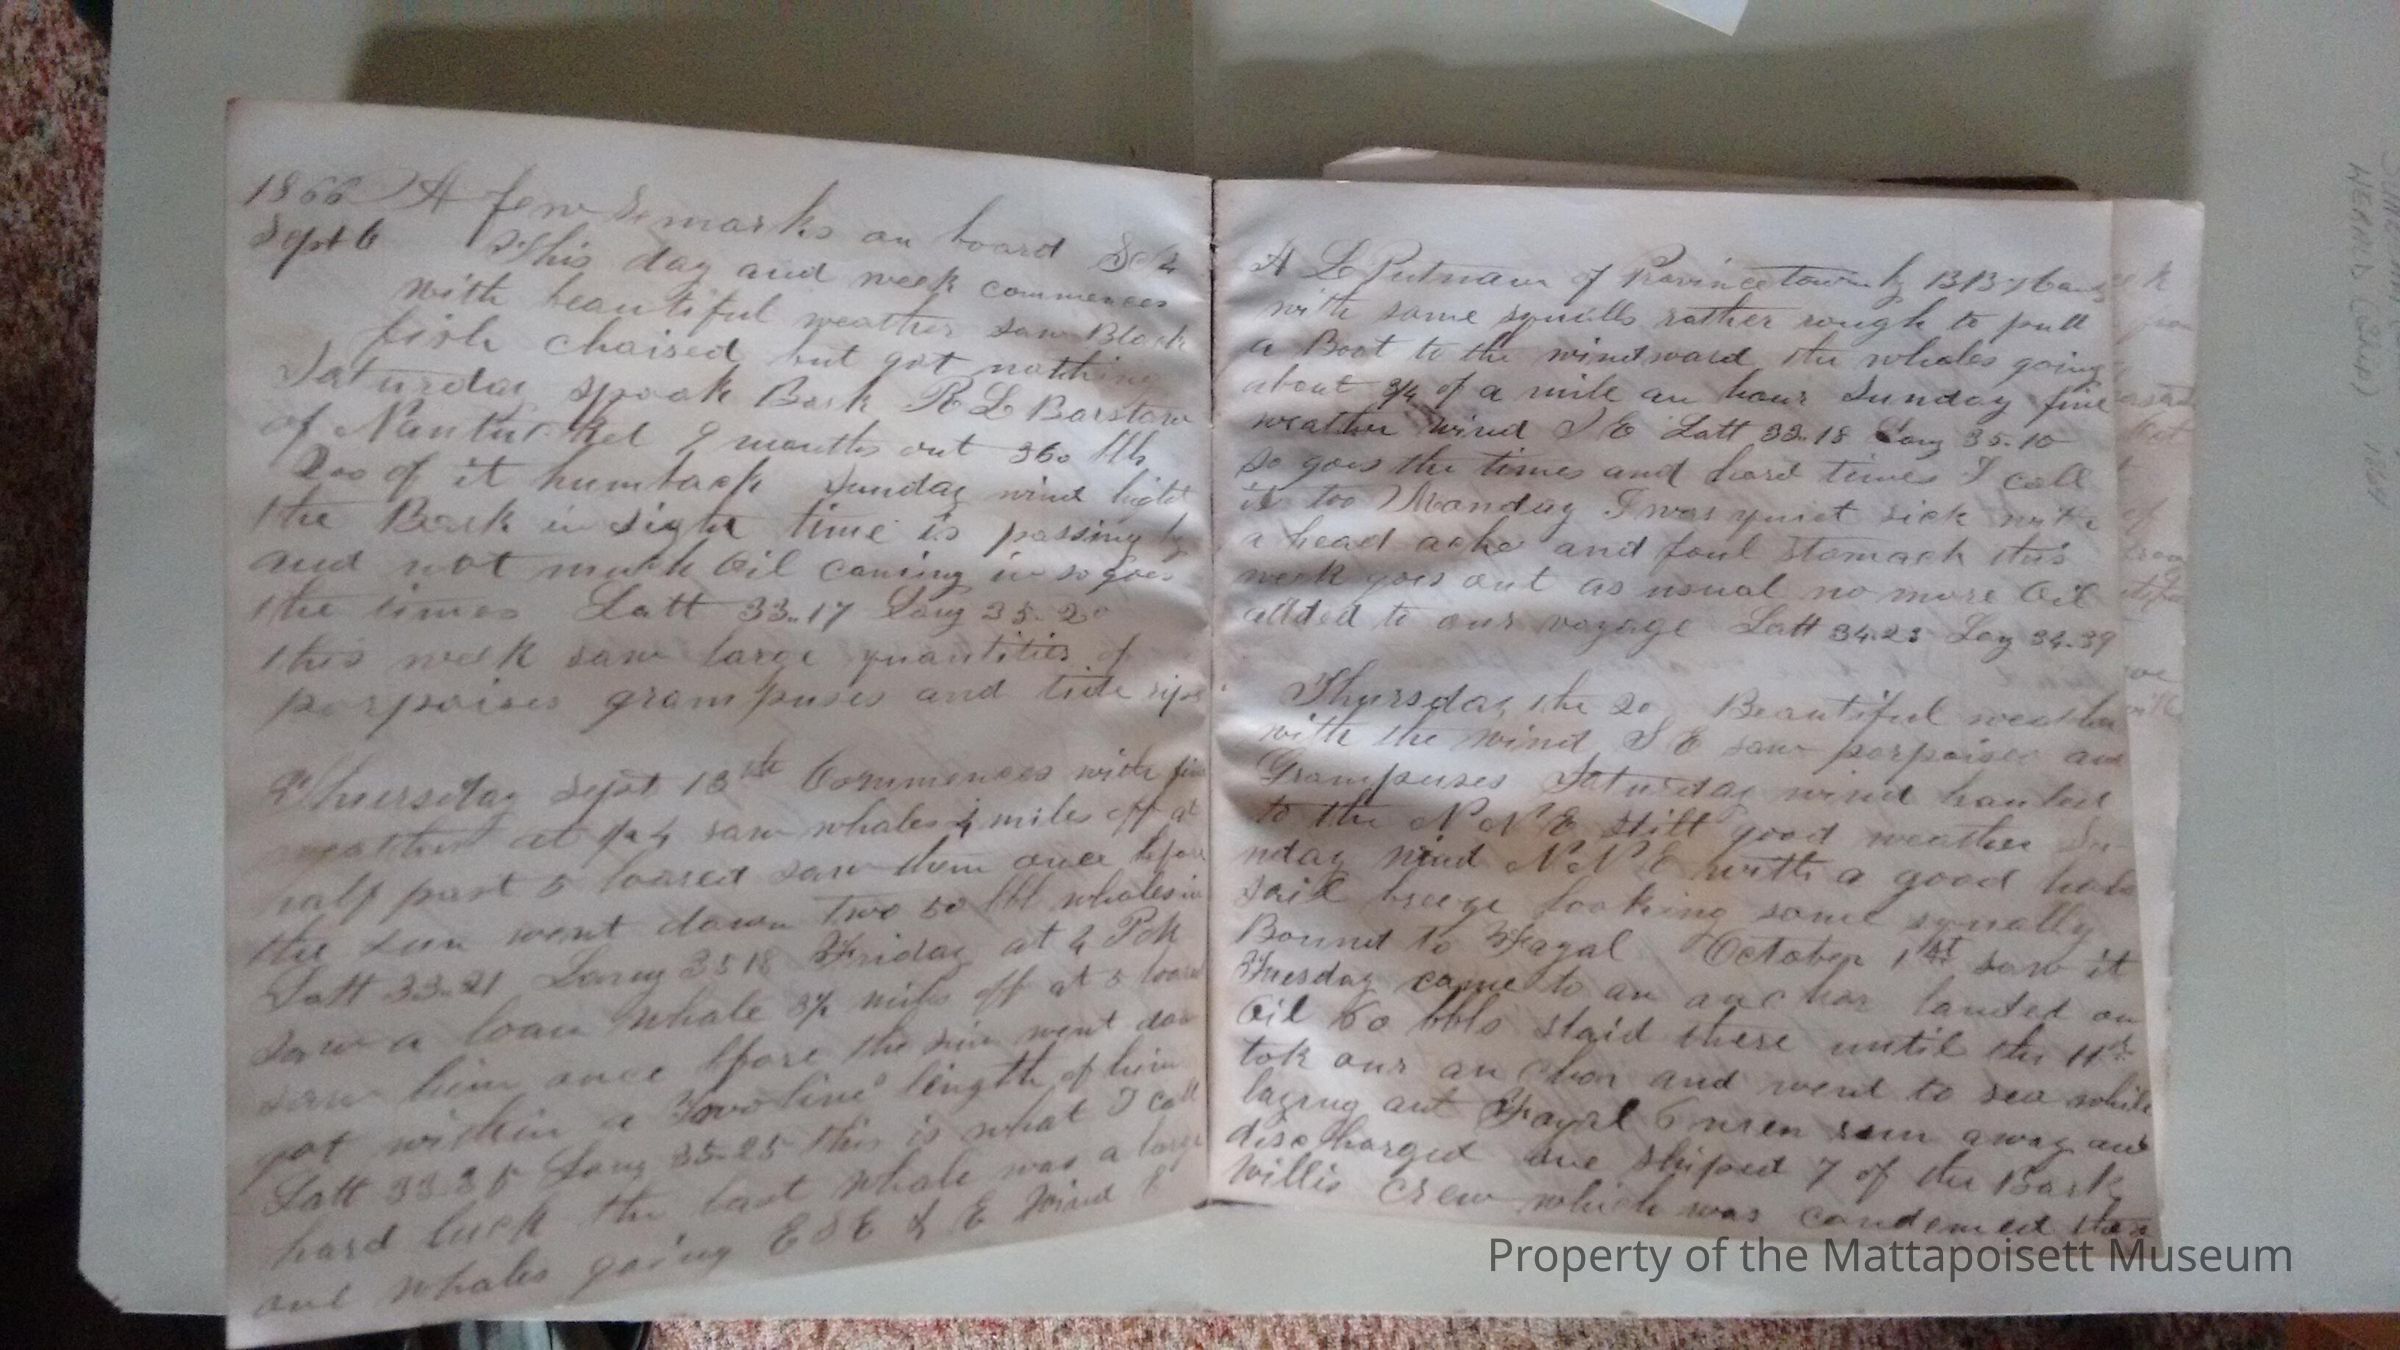 1866 A few Remarks on board Sch
Sept 6 This day and week commences
with beautiful weather saw Black
fish chaised but got nothing
Saturday spoak Bark R L Barstow
of Nantucket 9 months out 360 bbls
200 of it humback Sunday wind light
the Bark in sight time is passing by
and not mutch Oil coming in so goes
the times Latt 33..17 Long 35..20
this week saw large quantities of
porpoises grampuses and tide rips
Thursday Sept 13th Commences with fine
weather at 4 saw whales 4 miles off at
half past 5 loared saw them once before
the sun went down two 50 bbl whales in
Latt 33..21 Long 35 18 Friday at 4 Pok
saw a loan whale 3½ miles off at 5 loared
saw him once bfore the sun went dow
got within a Towline length of him
Latt 33.35 Long 35-25 this is what I call
hard luck the last whale was a large
one whales going E S E & E Wind
A L Putnam of Provincetown by B B Handy
with some squalls rather rough to pull
a Boat to the windward the whales going
about 3/4 of a mile an hour Sunday fine
weather wind S E Latt 33..18 Long 35-10
so goes the times and hard times I call
it too Monday I was quiet sick with
a head ache and foul stomack this
week goes out as usual no more Oil
added to our voyage Latt 34.23 Log 34.39
Thursday the 20 Beautiful weather
with the wind S E saw porpoises and
Grampuses Saturday wind hauled
to the N N E still good weather Su-
nday wind N N E with a good hole
sail breeze looking some squally
Bound to Fayal October 1st saw it
Tuesday came to an anchor landed our
Oil 60 bbls staid there until the 11th
tok our anchor and went to sea while
laying aut Fayal 6 men run away and
discharged one shiped 7 of the Bark
Willis crew which was condemed
Property of the Mattapoisett Museum